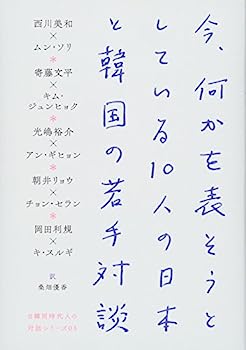 今、何かを表そうと
している10人の日本
と韓国の若手対談
西川美和
×
ムン・ソリ
*
寄藤文平
×
キム・
ジュンヒョク
*
光嶋裕介
×
アン・ギヒョン
*
朝井リョウ
×
チョン・セラン
*
岡田利規
×
キ・スルギ
訳
桑畑優香
日韓同時代人の
対話シリーズ